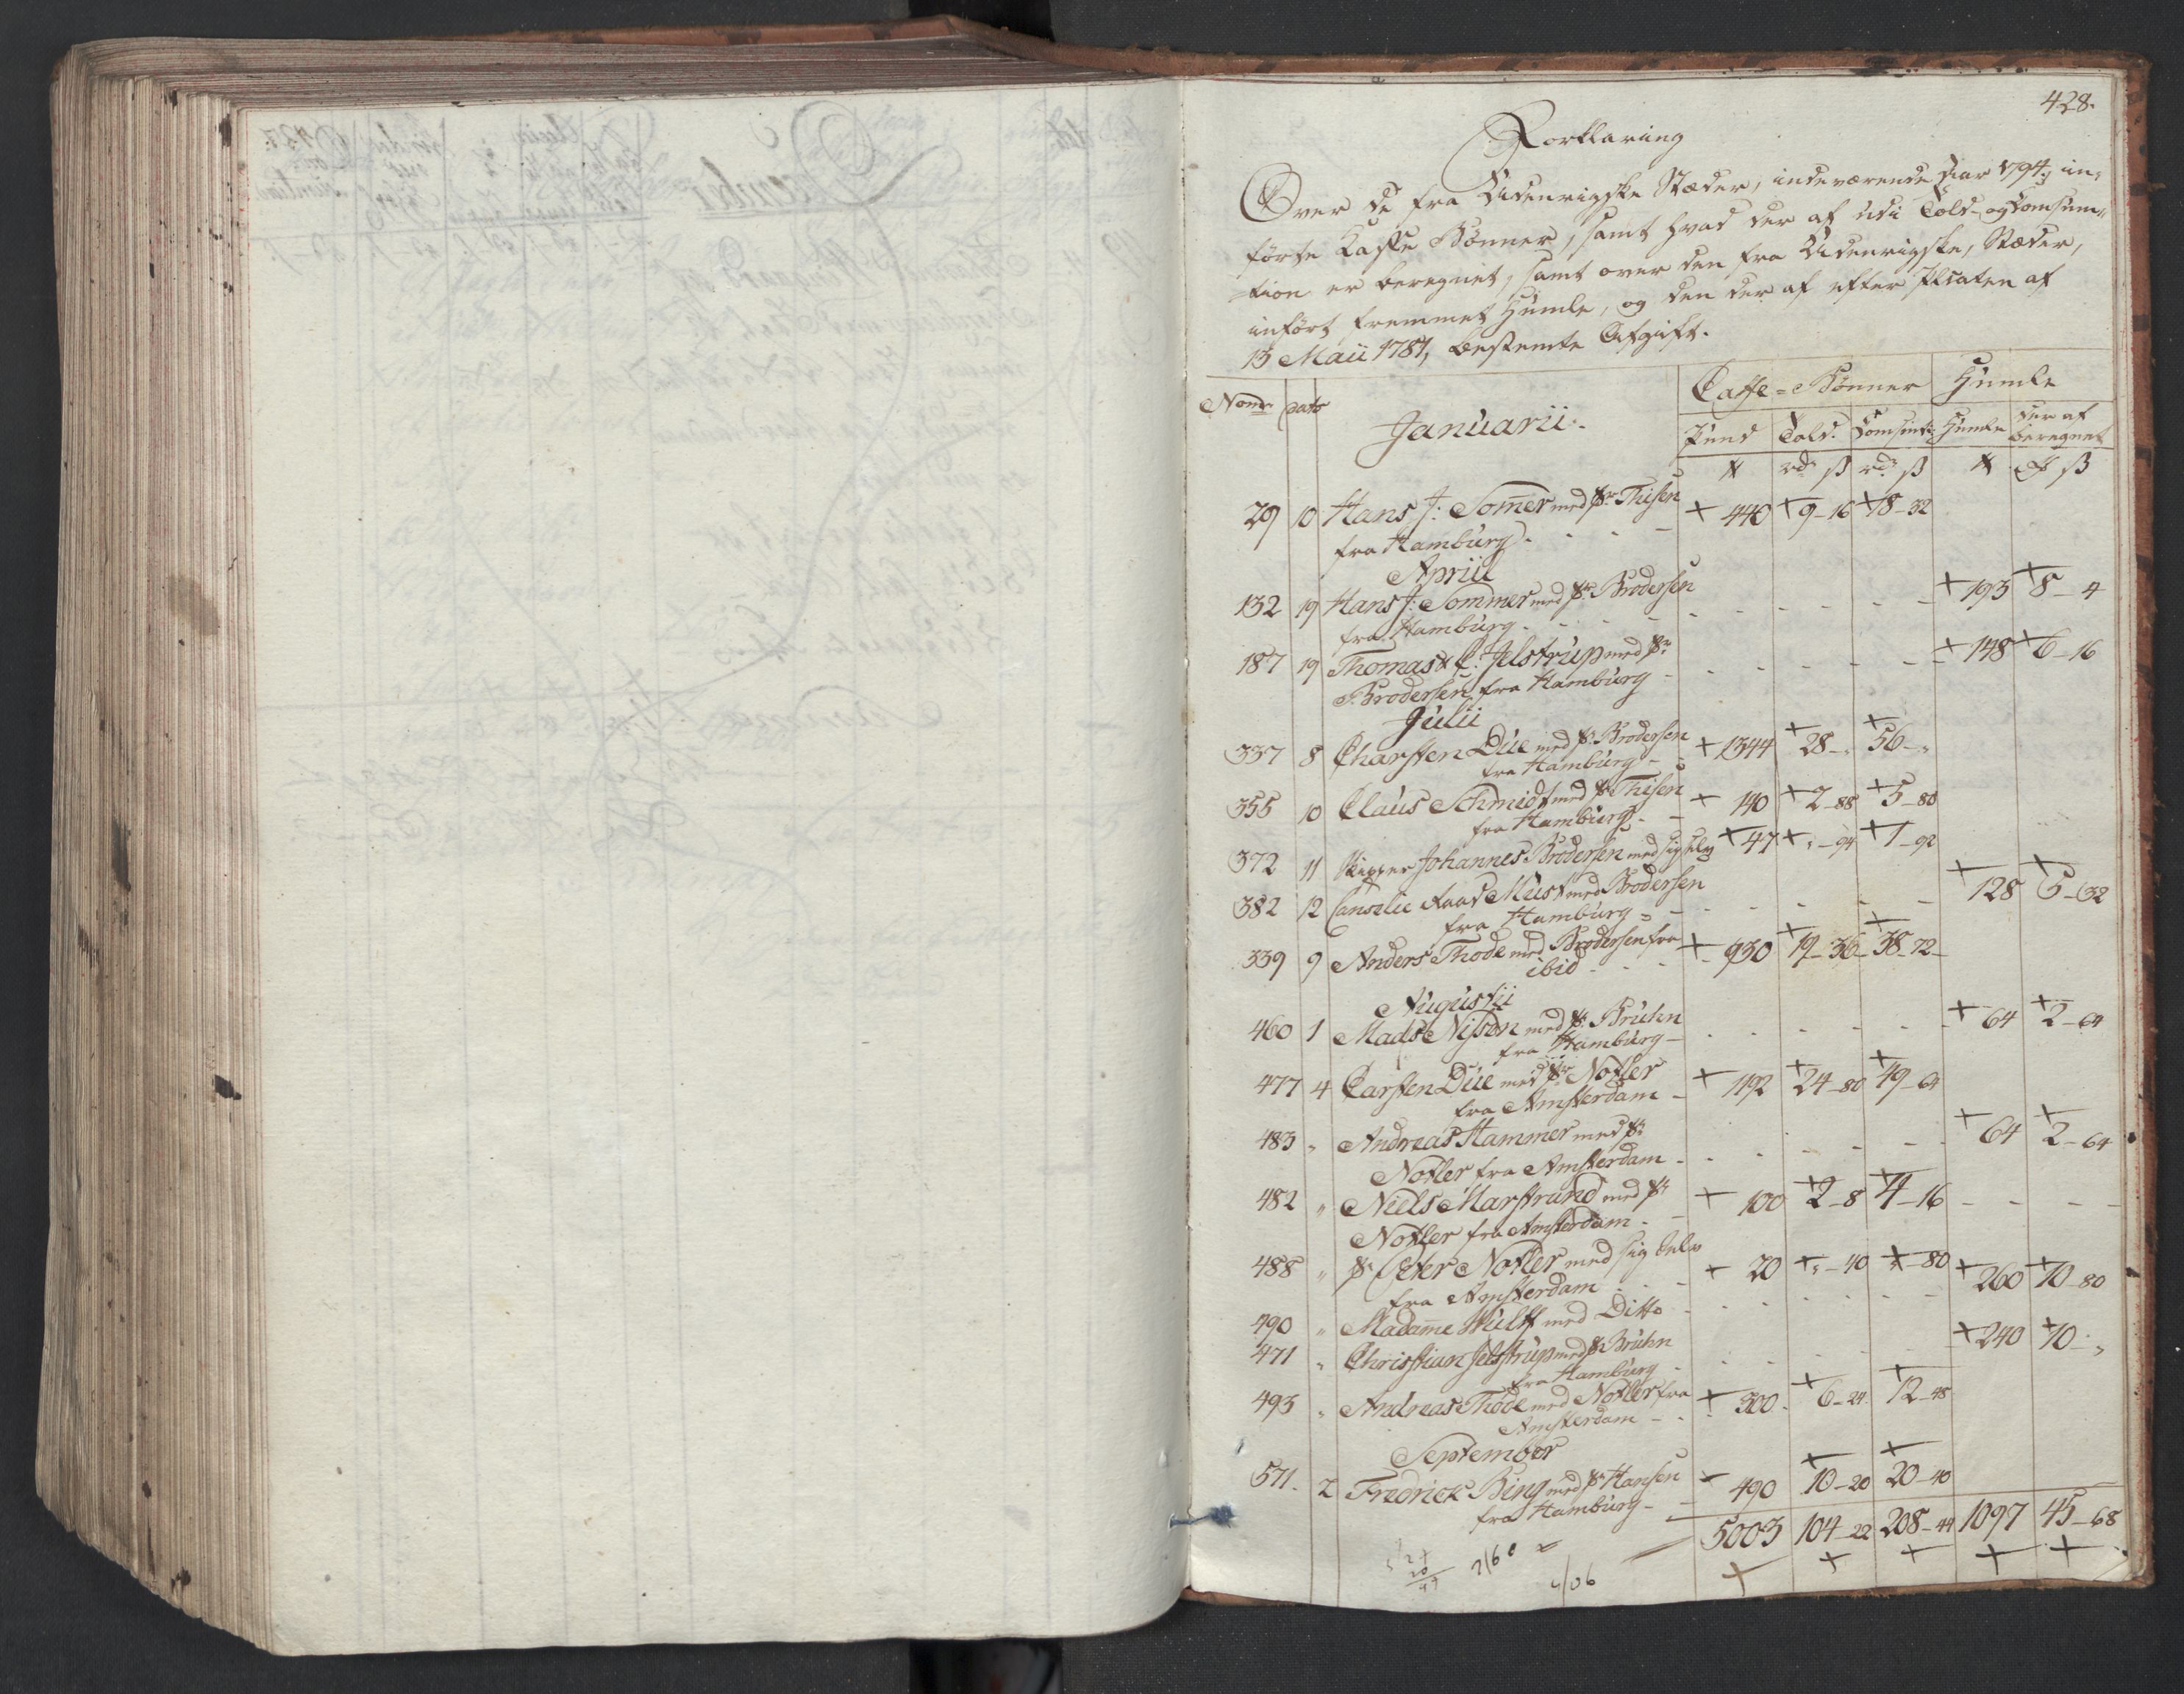 428.
Forklaring
Over de fra Udenrigske Stæder, indeværende Aar 1794, in-
førte Kaffe Bønner, samt hvad der af udi Told- og Consum-
tion er beregnet, samt over den fra Udenrigske Stæder,
indført fremmet Humle, og den der af efter Placaten af
13 Maii 1781, bestemte Afgift.
Nomr. Dato Januarii. Caffe-Bønner Humle
Pund Told. Consumt: Humle der af beregnet
℔ rdr ß rdr ß ℔ ß
29 10 Hans J: Sommer med Sr Thisen
fra Hamburg + 440 + 9-16 + 18-32
April
132 19 Hans J: Sommer med Sr Brodersen
fra Hamburg + 193 + 8-4
187 19 Thomas C: Jelstrup med Sr
Brodersen fra Hamburg + 148 + 6-16
Julii
337 8 Charsten Düe med Sr Brodersen
fra Hamburg + 1344 + 28-" + 56-"
355 10 Claus Schmidt med Sr Thisen
fra Hamburg + 140 + 2-88 + 5-80
372 11 Skipper Johannes Brodersen med sig selv + 47 + "-94 + 1-92
382 12 Cancelie Raad Must med Brodersen
fra Hamburg + 128 + 5-32
339 9 Anders Thode med Brodersen fra
ibid + 930 + 19-36 + 38-72
Augustii
460 1 Mads Nisson med Sr Bruhn
fra Hamburg + 64 + 2-64
477 4 Carsten Düe med Sr Notler
fra Amsterdam + 1192 + 24-80 + 49-64
483 " Andreas Hammer med Sr
Notler fra Amsterdam + 64 + 2-64
482 " Niels Marstrand med Sr
Notler fra Amsterdam + 100 + 2-8 + 4-16
488 " Sr Peter Notler med sig selv
fra Amsterdam + 20 + "-40 + "-80 + 260 + 10-80
490 " Madame Wulff med Ditto
471 " Christian Jelstrup med Sr Bruhn
fra Hamburg + 240 + 10-"
493 " Andreas Thode med Notler fra
Amsterdam + 300 + 6-24 + 12-48
September
571. 2 Fredrick Bing med Sr Hansen
fra Hamburg + 490 + 10-20 + 20-40
5003 104-22 208-44 1097 45-68
+ + + + +